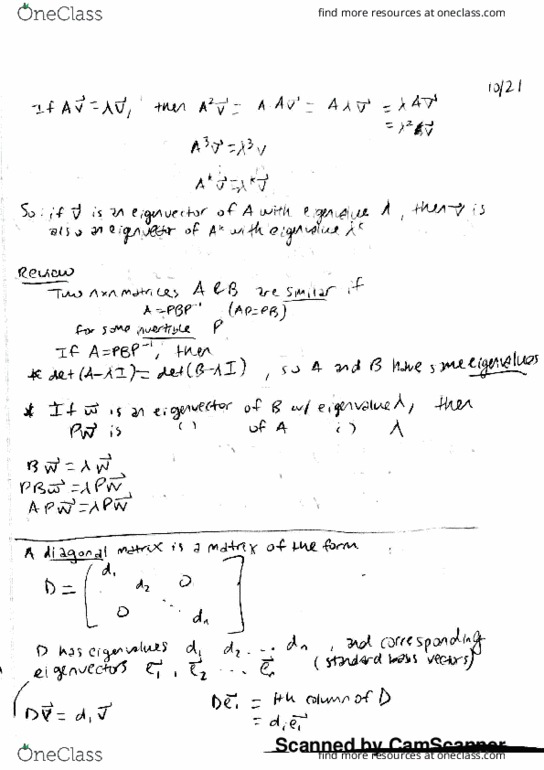 OneClass find more resources at oneclass.com
10/21
If Av⃗ = λv⃗, then A²v⃗ = A·Av⃗ = Aλv⃗ = λAv⃗
= λ²v⃗
A³v⃗ = λ³v
Aᵏv⃗ = λᵏv⃗
So: if v⃗ is an eigenvector of A with eigenvalue λ, then v⃗ is
also an eigenvector of Aᵏ with eigenvalue λᵏ
Review
Two nxn matrices A & B are similar if
A = PBP⁻¹ (AP=PB)
for some invertible P
If A=PBP⁻¹, then
* det(A-λI) = det(B-λI), so A and B have same eigenvalues
* If w⃗ is an eigenvector of B w/ eigenvalue λ, then
Pw⃗ is ( ) of A ( ) λ
Bw⃗ = λw⃗
PBw⃗ = λPw⃗
APw⃗ = λPw⃗
A diagonal matrix is a matrix of the form
D = [ d₁ d₂ 0 0 ⋱ dₙ ]
D has eigenvalues d₁ d₂ ... dₙ, and corresponding
eigenvectors e⃗₁, e⃗₂ ... e⃗ₙ (standard basis vectors)
Dv⃗ = d₁v⃗ De⃗ᵢ = ith column of D
= dᵢe⃗ᵢ
Scanned by CamScanner
OneClass find more resources at oneclass.com